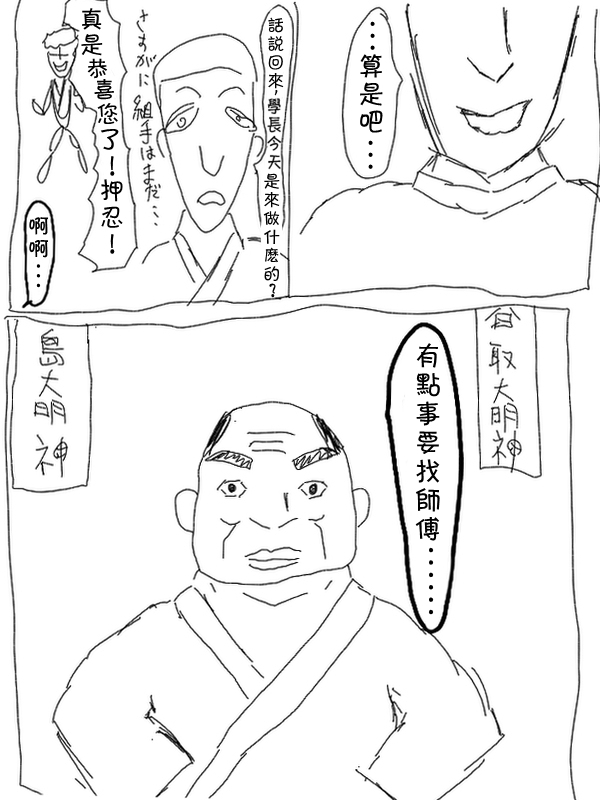 …算是吧…
話說回來，學長今天是來做什麼的？
さすがに組手はまだ…
真是恭喜您了！押忍！
啊啊…
有點事要找師傅……
取大明神
島大明神